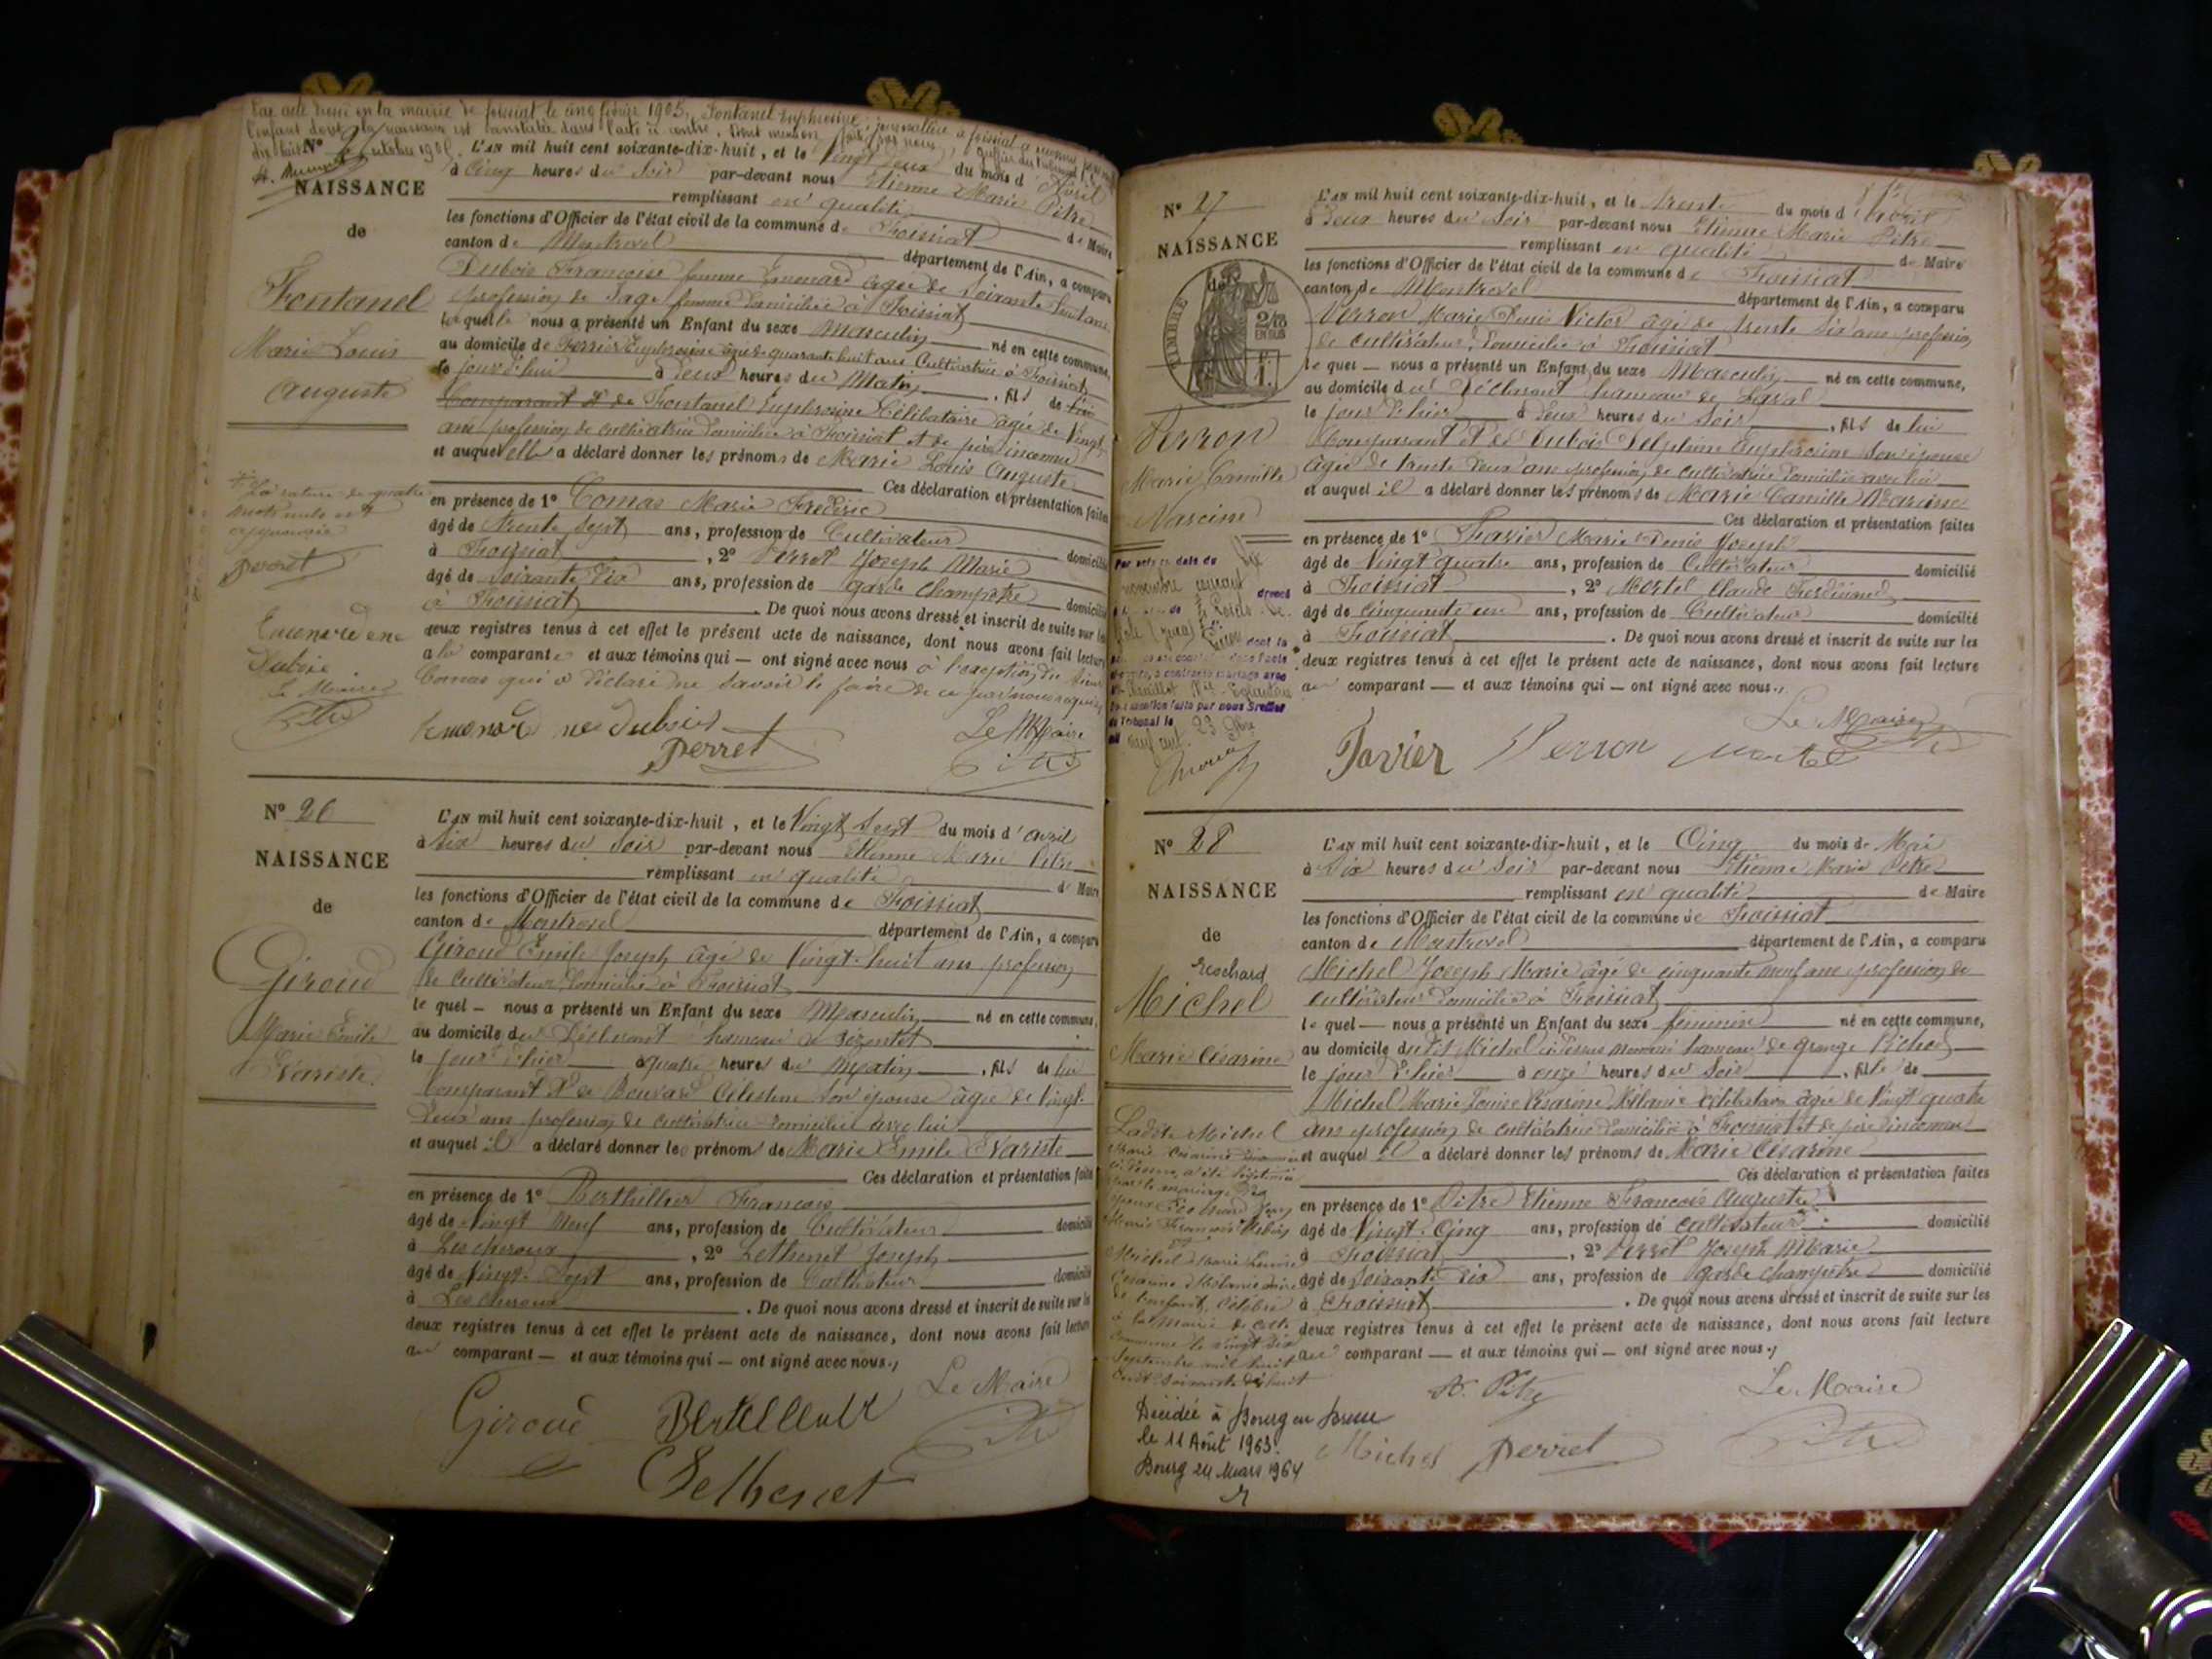 Par acte dressé en la mairie de foissiat le cinq février 1905, Fontanel Euphrosine, journalière à foissiat a reconnu pour
l'enfant dont la naissance est constatée dans l'acte ci contre. Dont mention faite par nous, greffier du tribunal
dix huit octobre 1905.
N° 25
NAISSANCE
de
Fontanel
Marie Louis
Auguste
L'an mil huit cent soixante-dix-huit, et le Vingt deux du mois d'Avril
à Cinq heures du Soir par-devant nous Etienne Marie Pitre
remplissant en qualité de Maire
les fonctions d'Officier de l'état civil de la commune de Foissiat
canton de Montrevel département de l'Ain, a comparu
Dubois Françoise femme Emonard agée de soixante huit ans
profession de Sage femme domiciliée à Foissiat
laquelle nous a présenté un Enfant du sexe Masculin né en cette commune,
au domicile de Ferrier Euphrosine agée de quarante huit ans Cultivatrice à Foissiat
le jour d'hui à deux heures du Matin, fils de lui
Comparant et de Fontanel Euphrosine Célibataire agée de Vingt
ans profession de cultivatrice domiciliée à Foissiat et de père inconnu
et auquel elle a déclaré donner les prénoms de Marie Louis Auguste
Ces déclaration et présentation faites
en présence de 1° Comas Marie Frédéric
âgé de trente sept ans, profession de Cultivateur domicilié
à Foissiat, 2° Perret Joseph Marie
âgé de soixante dix ans, profession de garde Champêtre domicilié
à Foissiat. De quoi nous avons dressé et inscrit de suite sur les
deux registres tenus à cet effet le présent acte de naissance, dont nous avons fait lecture
a la comparante et aux témoins qui — ont signé avec nous à l'exception du sieur
Comas qui a déclaré ne savoir le faire de ce par nous requis
La rature de quatre
mots nuls est
approuvée
Perret
Emonard née
Dubois
Le Maire
Pitre
Emonard née Dubois
Perret
Le Maire
Pitre
N° 26
NAISSANCE
de
Giroud
Marie Emile
Evariste
L'an mil huit cent soixante-dix-huit, et le Vingt Sept du mois d'avril
à Six heures du Soir par-devant nous Etienne Marie Pitre
remplissant en qualité de Maire
les fonctions d'Officier de l'état civil de la commune de Foissiat
canton de Montrevel département de l'Ain, a comparu
Giroud Emile Joseph âgé de Vingt-huit ans profession
de Cultivateur domicilié à Foissiat
le quel — nous a présenté un Enfant du sexe Masculin né en cette commune,
au domicile du Déclarant hameau de
le jour d'hier à quatre heures du Matin, fils de lui
comparant et de Bouvard Célestine son épouse âgée de Vingt
deux ans profession de cultivatrice domiciliée avec lui
et auquel il a déclaré donner les prénoms de Marie Emile Evariste
Ces déclaration et présentation faites
en présence de 1° Berthillier François
âgé de Vingt Neuf ans, profession de Cultivateur domicilié
à Lescheroux, 2° Lethenet Joseph
âgé de Vingt Sept ans, profession de Cultivateur domicilié
à Lescheroux. De quoi nous avons dressé et inscrit de suite sur les
deux registres tenus à cet effet le présent acte de naissance, dont nous avons fait lecture
au comparant — et aux témoins qui — ont signé avec nous.,
Le Maire
Giroud
Lethenet
N° 27
NAISSANCE
de
TIMBRE
2/10
EN SUS
F.
1.
Perron
Marie Camille
Narcisse
L'an mil huit cent soixante-dix-huit, et le trente du mois d'Avril
à Deux heures du Soir par-devant nous Etienne Marie Pitre
remplissant en qualité de Maire
les fonctions d'Officier de l'état civil de la commune de Foissiat
canton de Montrevel département de l'Ain, a comparu
Perron Marie Denis Victor agé de trente six ans profession
de cultivateur domicilié à Foissiat
le quel — nous a présenté un Enfant du sexe Masculin né en cette commune,
au domicile du Déclarant hameau de Laval
le jour d'hier à deux heures du Soir, fils de lui
Comparant et de Dubois Delphine Euphrosine son épouse
agée de trente deux ans profession de cultivatrice domiciliée avec lui
et auquel il a déclaré donner les prénoms de Marie Camille Narcisse
Ces déclaration et présentation faites
en présence de 1° Favier Marie Denis Joseph
âgé de Vingt quatre ans, profession de Cultivateur domicilié
à Foissiat, 2° Martel Claude Ferdinand
âgé de cinquante un ans, profession de Cultivateur domicilié
à Foissiat. De quoi nous avons dressé et inscrit de suite sur les
deux registres tenus à cet effet le présent acte de naissance, dont nous avons fait lecture
au comparant — et aux témoins qui — ont signé avec nous.,
Par acte en date du dix
novembre courant
devant
dont la
contracté mariage avec
mention faite par nous Greffier
du Tribunal le 23
Le Maire
Favier Perron Martel
N° 28
NAISSANCE
de
Reschard
Michel
Marie Césarine
L'an mil huit cent soixante-dix-huit, et le Cinq du mois de Mai
à Six heures du Soir par-devant nous Etienne Marie Pitre
remplissant en qualité de Maire
les fonctions d'Officier de l'état civil de la commune de Foissiat
canton de Montrevel département de l'Ain, a comparu
Michel Joseph Marie âgé de cinquante neuf ans profession de
cultivateur domicilié à Foissiat
le quel — nous a présenté un Enfant du sexe féminin né en cette commune,
au domicile dudit Michel ci dessus nommé hameau de grange Pichod
le jour d'hier à onze heures du Soir, fille de
Michel Marie Louise Césarine Mélanie célibataire âgée de Vingt quatre
ans profession de cultivatrice domiciliée à Foissiat et de père inconnu
et auquel il a déclaré donner les prénoms de Marie Césarine
Ces déclaration et présentation faites
en présence de 1° Pitre Etienne François Auguste
âgé de Vingt-Cinq ans, profession de cultivateur domicilié
à Foissiat, 2° Perret Joseph Marie
âgé de soixante dix ans, profession de garde champêtre domicilié
à Foissiat. De quoi nous avons dressé et inscrit de suite sur les
deux registres tenus à cet effet le présent acte de naissance, dont nous avons fait lecture
au comparant — et aux témoins qui — ont signé avec nous.,
Ladite Michel
Marie Césarine
a été légitimée
par le mariage de
Marie François
Michel Marie Louise
Césarine Mélanie mère
de l'enfant, célébré
à la Mairie de cette
commune le vingt six
Septembre mil huit
cent soixante dix huit
Décédée à Bourg en Bresse
le 11 Août 1963.
Bourg 24 Mars 1964
A. Pitre
Le Maire
Michel Perret